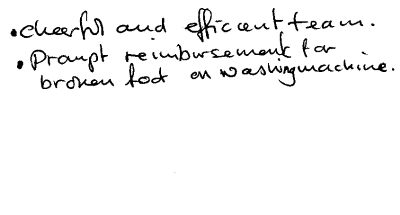 •cheerful and efficient team.
•Prompt reimbursement for
broken foot on washingmachine.